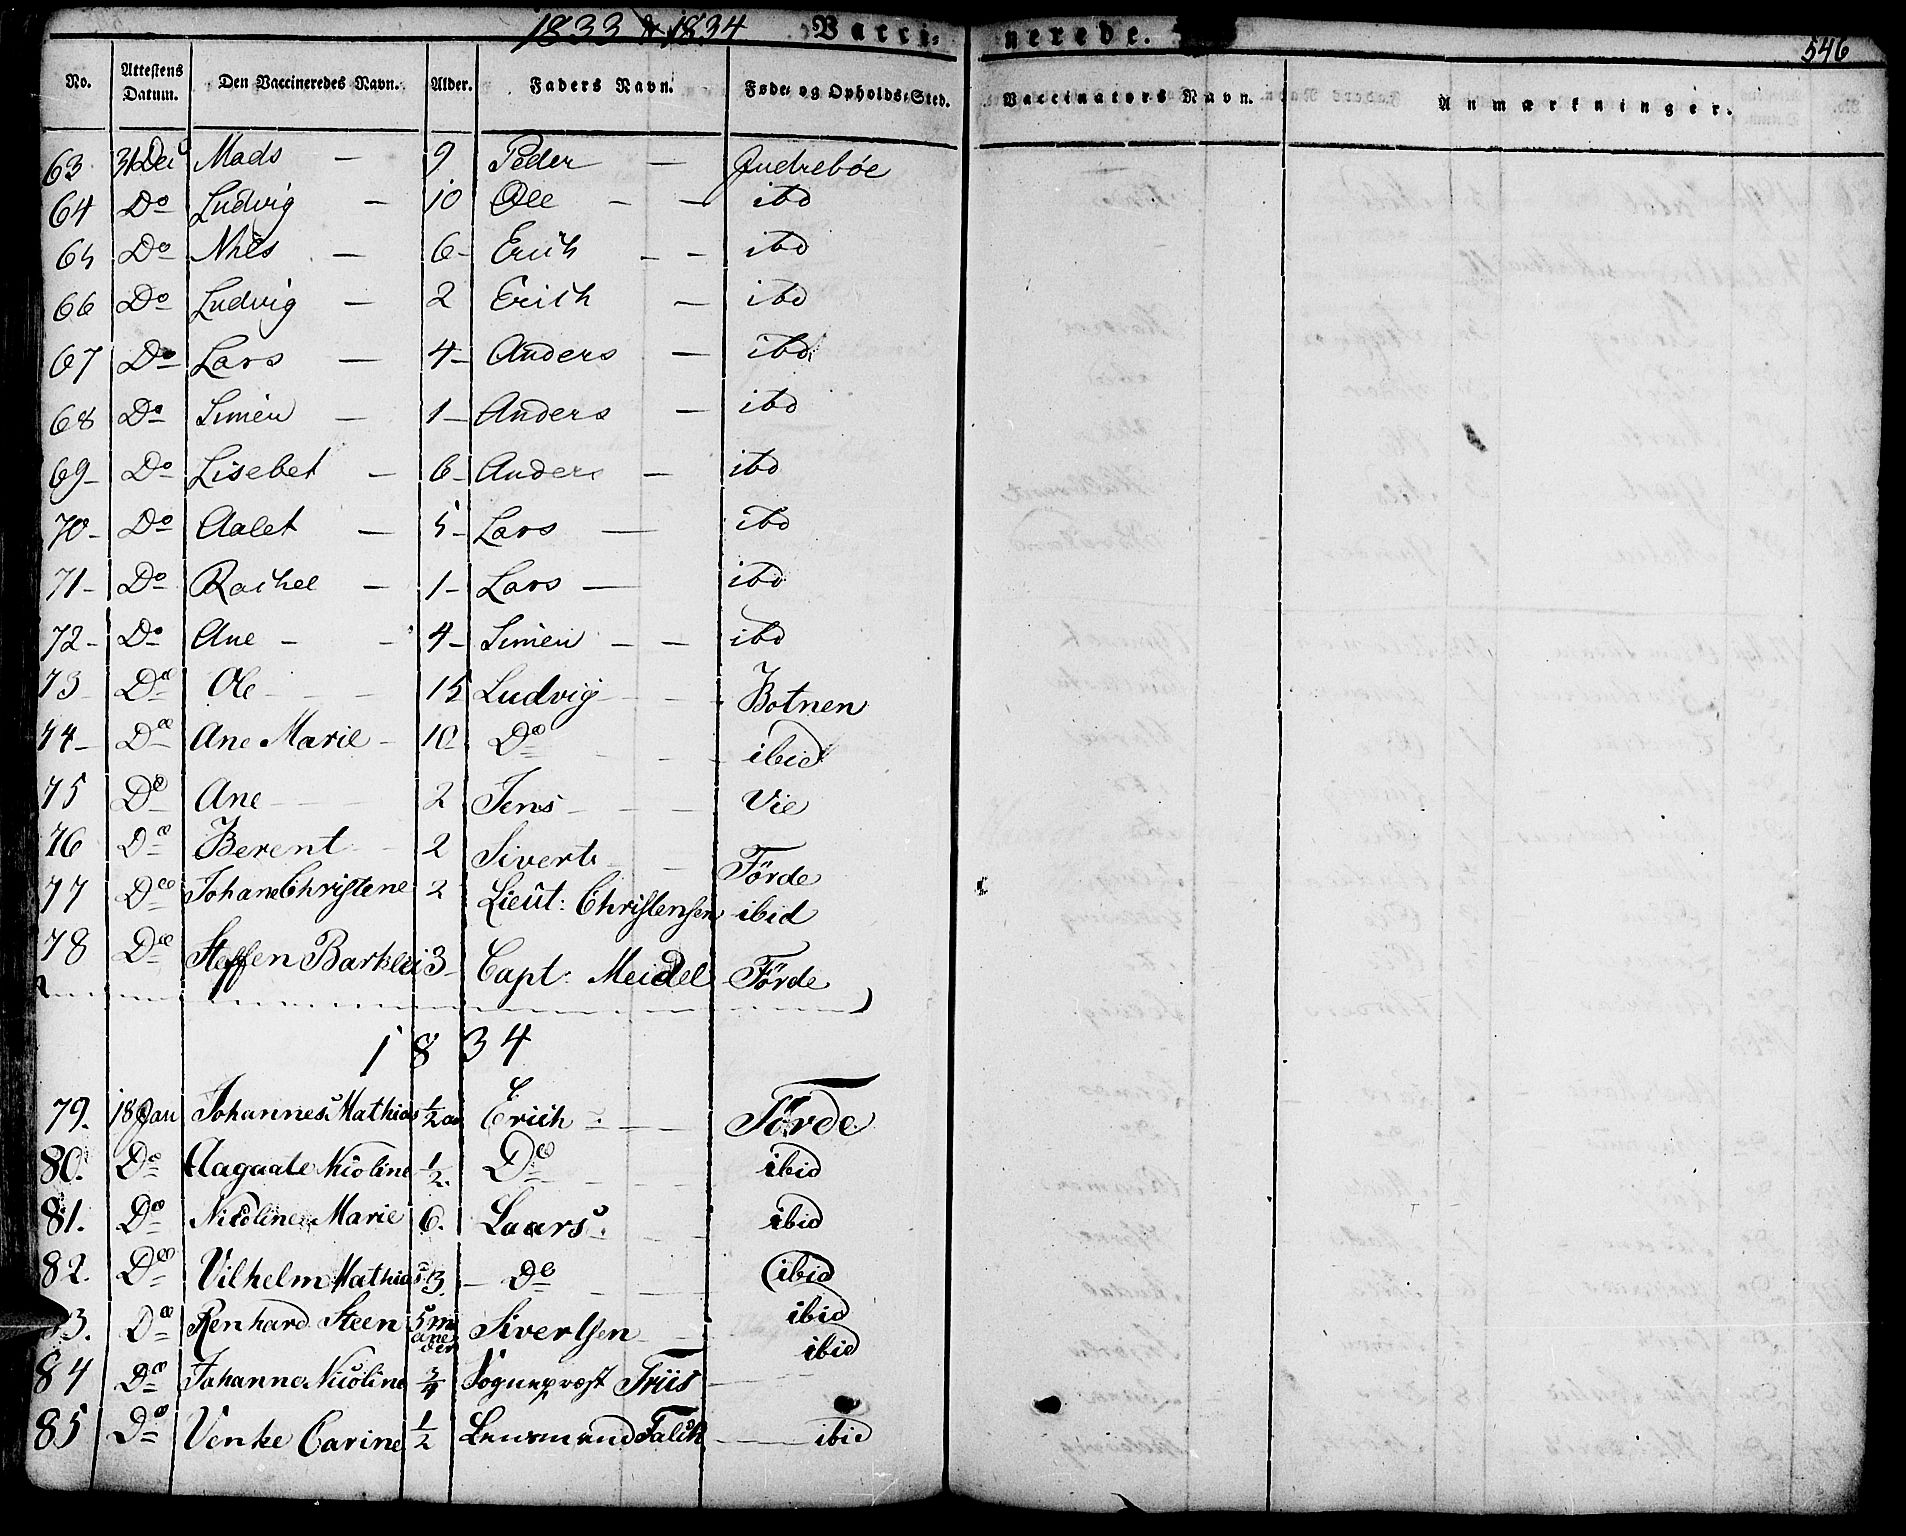 1833 & 1834 Vacci- nerede. 546
No. Attestens Datum. Den Vaccineredes Navn. Alder. Faders Navn. Føde- og Opholds-Sted. Vaccinators Navn. Anmærkninger.
63 31 Dec Mads — 9 Peder — Indrebøe
64 Do Ludvig — 10 Ole — — ibd
65 Do Niels — 6 - Erich — — ibd
66 Do Ludvig — 2 Erich — ibd
67 Do Lars — 4 - Anders — ibd
68 Do Simen — 1 - Anders — ibd
69 - Do Lisebet — 6 - Anders — ibd
70 - Do Aalet — 5 - Lars — ibd
71 - Do Rachel — 1 - Lars — ibd
72 - Do Ane - - 4 - Simen — — ibd
73 Do Ole - - 15 Ludvig - - Botnen
74 - Do Ane Marie - 10 Do - - ibid
75 Do Ane - - 2 Jens - - Vie
76 Do Berent - 2 Sivert - - Förde
77 Do Johane Christene 2 Lieut: Christensen ibid
78 Do Steffen Barklei 3 - Capt: Meidel Förde
1834
79. 18 Jan Johannes Mathias 1/2 aar Erich - - Förde
80. Do Aagaate Nicoline 1/2. Do - - ibid
81. Do Nicoline Marie 6. Laars. - - ibid
82. Do Vilhelm Mathias 3. - Do - - ibid
83. Do Renhard Steen 5 maaneder Sivertsen - - ibid
84 Do Johanne Nicoline 3/4 Sogneprost Friis - - ibid
85 Do Venke Carine 1/2 Lensmend Falck — ibid